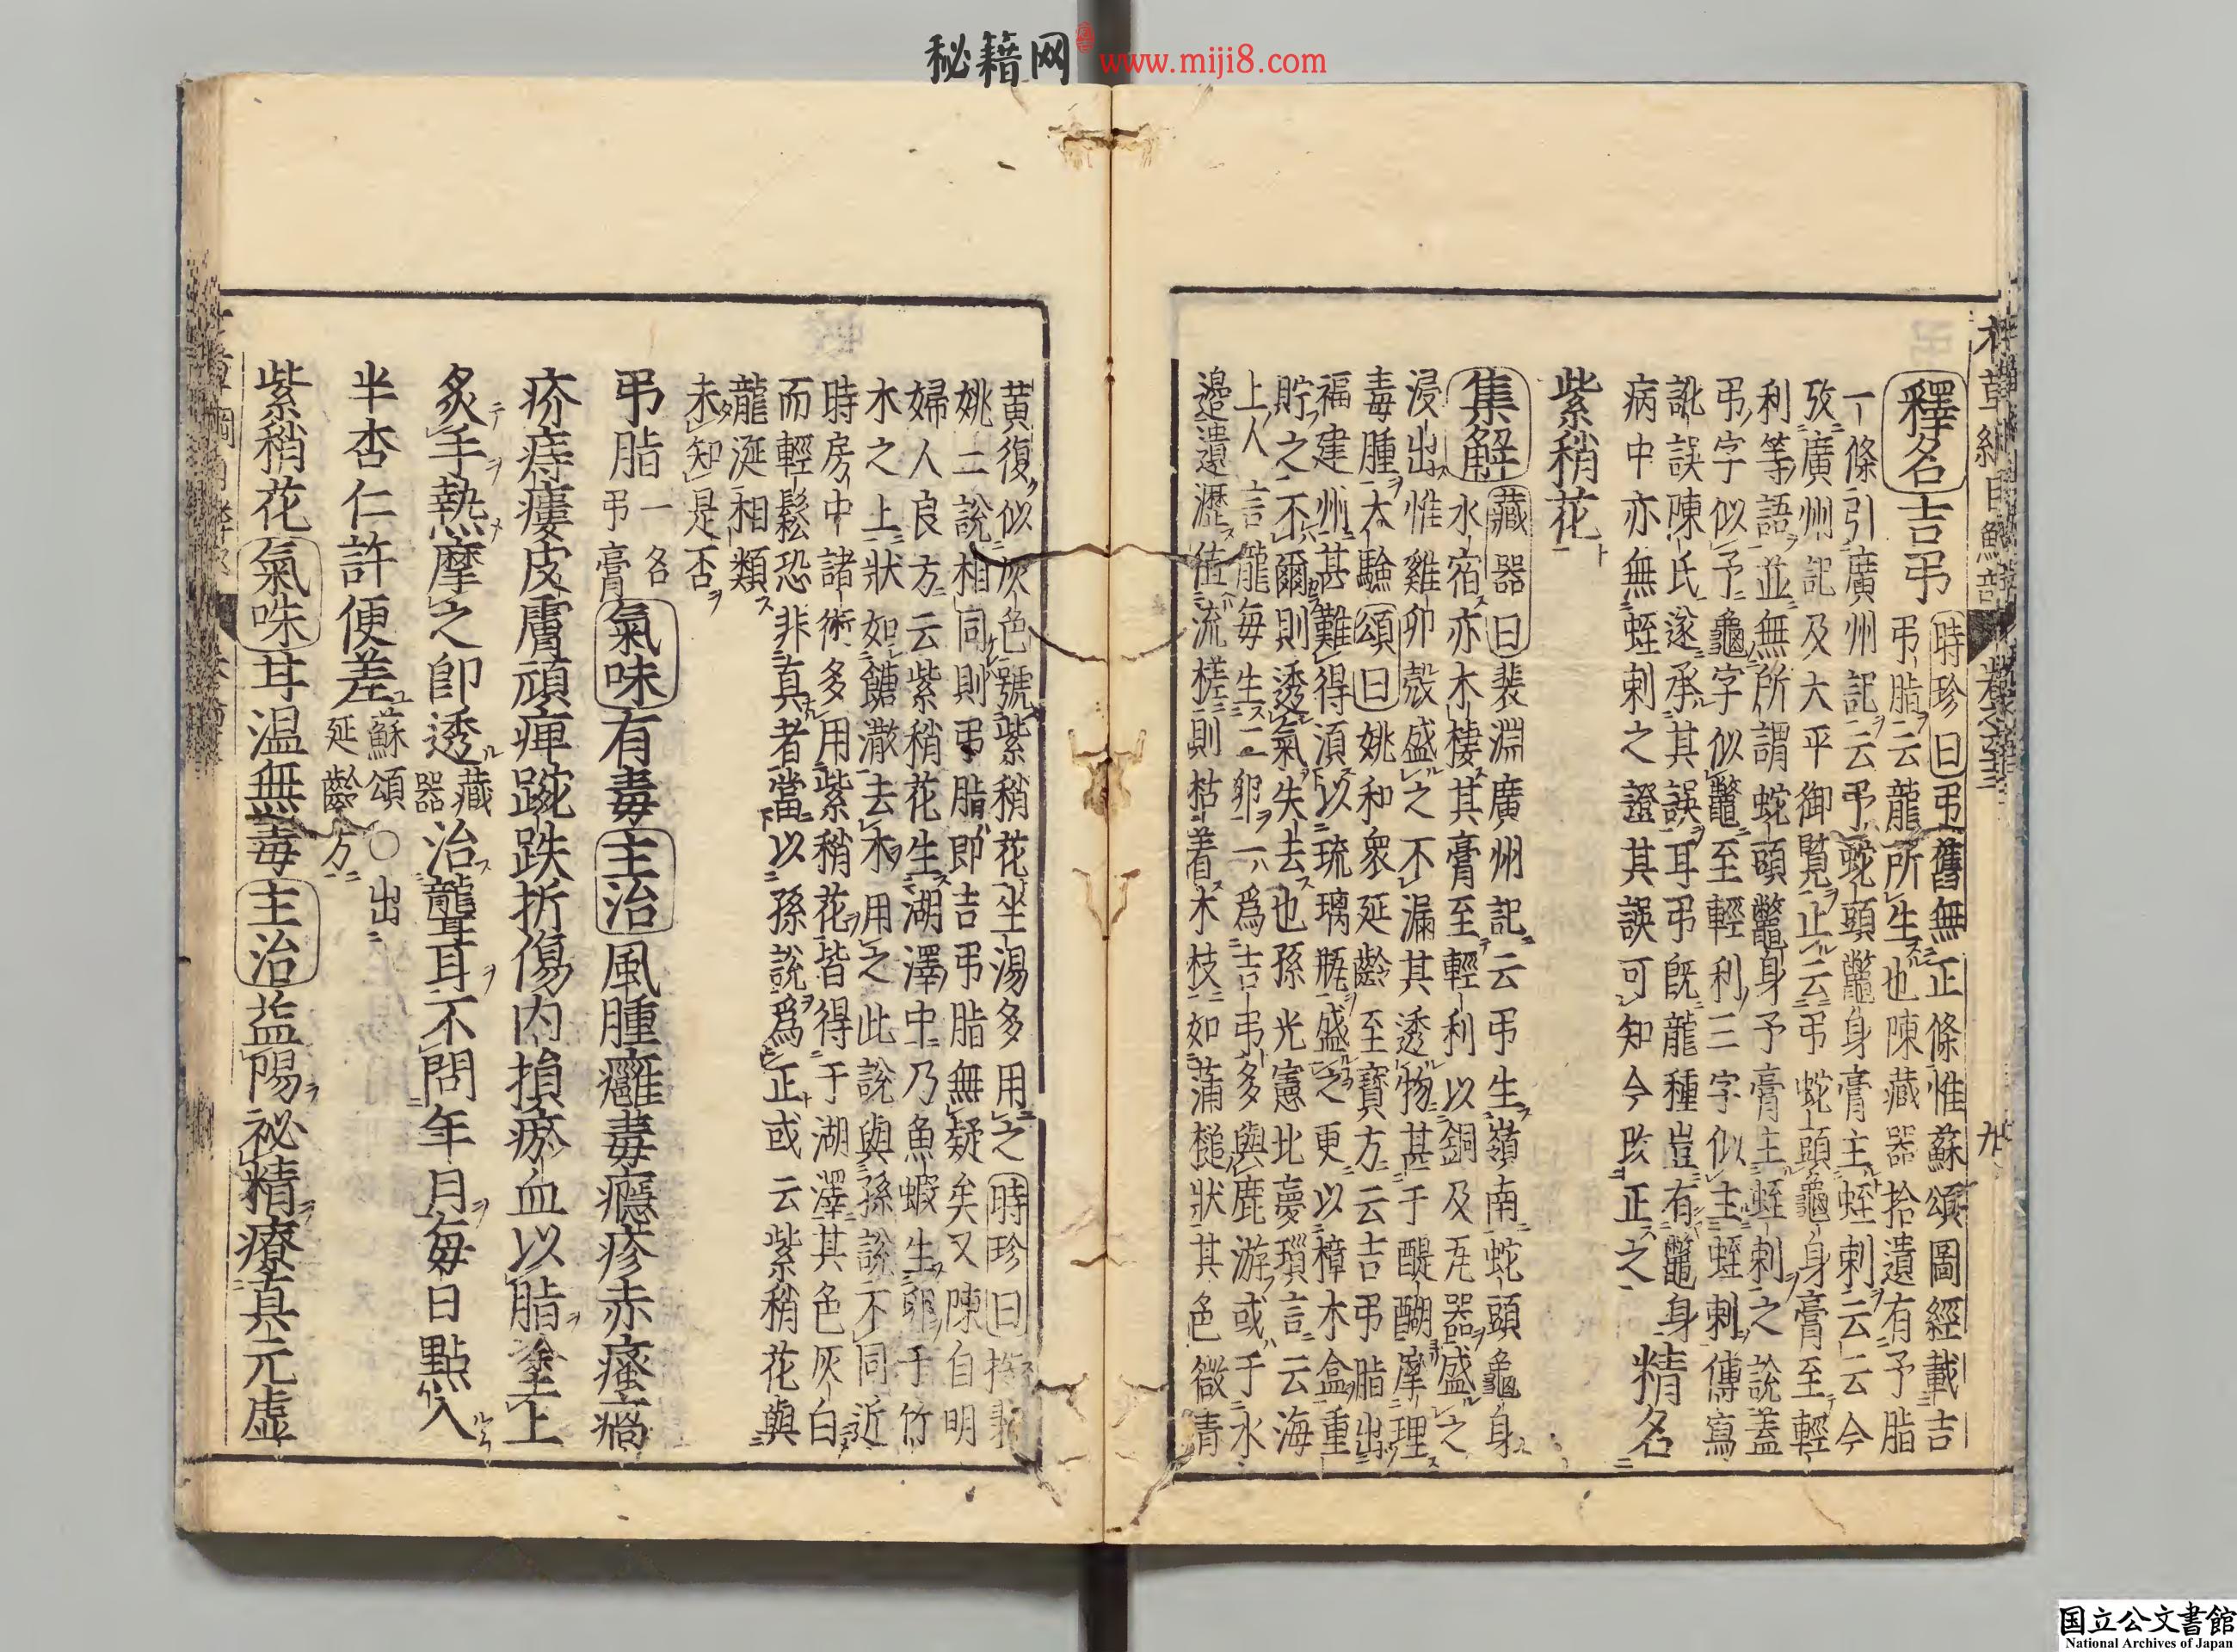 秘籍网 www.miji8.com
釋名吉弔時珍曰弔舊無正條惟蘇頌圖經載吉
弔脂云龍所生也陳藏器拾遺有予脂
一條引廣州記云予蛇頭鼈身膏主蛭刺云云今
攷廣州記及大平御覽止云弔蛇頭龜身膏至輕
利等語並無所謂蛇頭鼈身予膏主蛭刺之說蓋
弔字似予龜字似鼈至輕利三字似主蛭刺傳寫
訛誤陳氏遂承其誤耳弔既龍種豈有鼈身
病中亦無蛭刺之證其誤可知今改正之精名
紫稍花
集解藏器曰裴淵廣州記云弔生嶺南蛇頭龜身
水宿亦木棲其膏至輕利以銅及瓦器盛之
浸出惟雞卵殼盛之不漏其透物甚于醍醐摩理
毒腫大驗頌曰姚和衆延齡至寶方云吉弔脂出
福建州甚難得須以琉璃瓶盛之更以樟木盒重
貯之不爾則透氣失去也孫光憲北夢瑣言云海
上人言龍每生二卵一爲吉弔多與鹿游或于水
邉遺瀝值流槎則枯着木枝如蒲槌狀其色微青
黃復似灰色號紫稍花坐湯多用之時珍曰
姚二說相同則弔脂即吉弔脂無疑矣又陳自明
婦人良方云紫稍花生湖澤中乃魚蝦生卵于竹
木之上狀如餹潵去木用之此說與孫說不同近
時房中諸術多用紫稍花皆得于湖澤其色灰白
而輕鬆恐非真者當以孫說爲正或云紫稍花與
龍涎相類
未知是否
弔脂一名弔膏氣味有毒主治風腫癰毒癮疹赤瘙㾦
疥痔瘻皮膚頑痺踠跌折傷内損瘀血以脂塗上
炙手熱摩之卽透藏器治聾耳不問年月每日點入
半杏仁許便差蘇頌○出延齡方
紫稍花氣味甘温無毒主治益陽祕精療真元虛
国立公文書館
National Archives of Japan